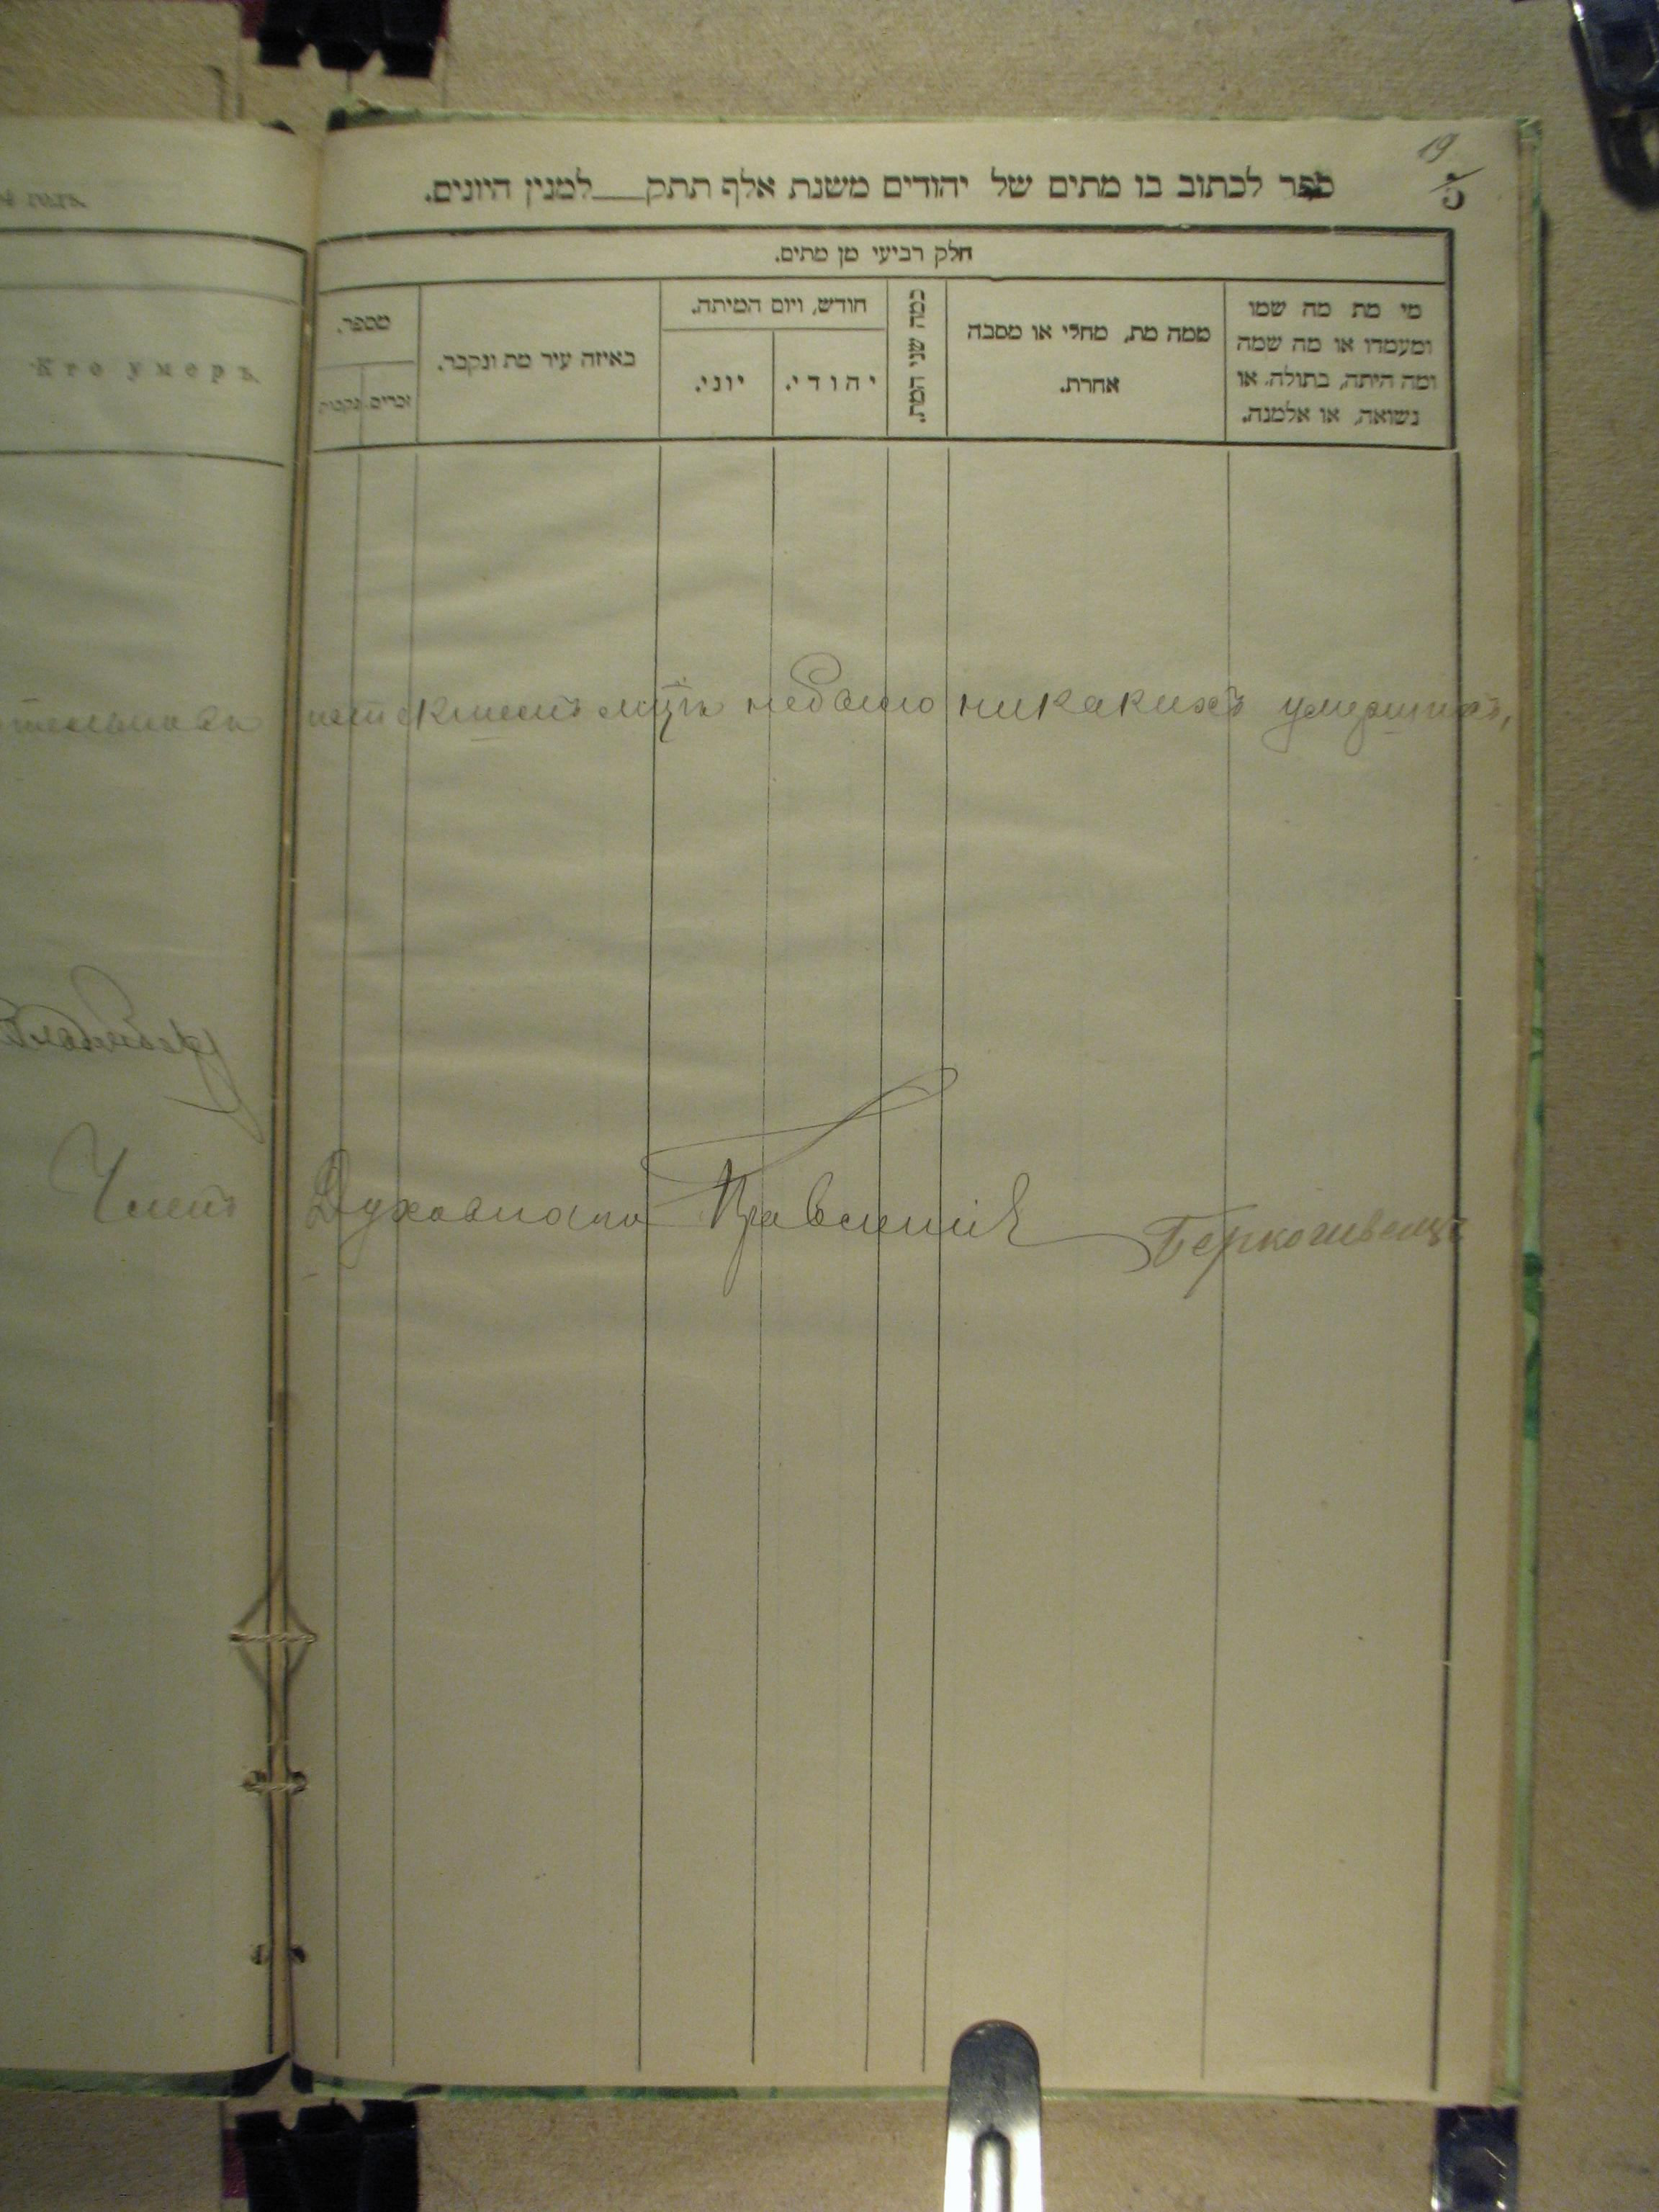 19
5
ספר לכתוב בו מתים של יהודים משנת אלף תתק___למנין היונים.
חלק רביעי מן מתים.
מי מת מה שמו
ומעמדו או מה שמה
ומה היתה, בתולה, או
נשואה, או אלמנה.
ממה מת, מחלי או מסבה
אחרת.
כמה שני המת.
חודש, ויום המיתה.
יהודי.
יוני.
באיזה עיר מת ונקבר.
מספר.
זכרים.
נקבות
Кто умеръ.
небыло никакихъ умершихъ,
Членъ Духовнаго Правленія